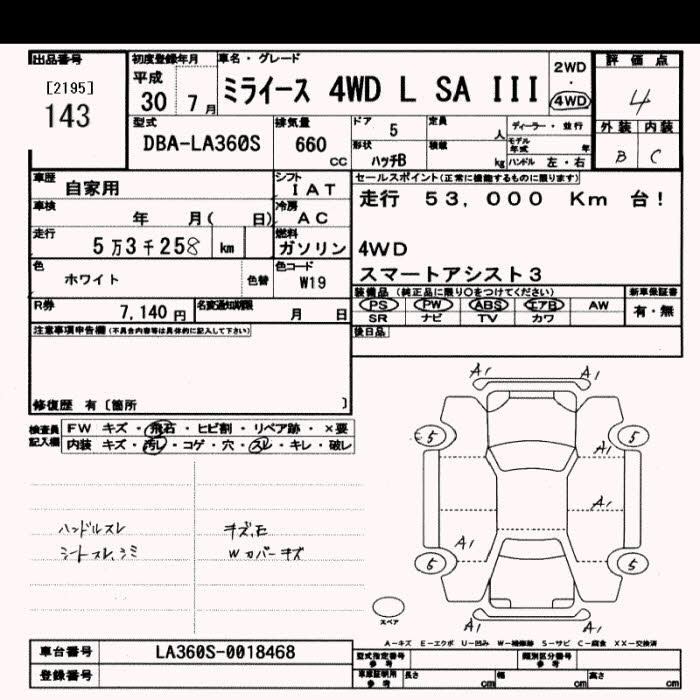 出品番号
[2195]
143
初度登録年月
平成
30 7 月
車名・グレード
ミライース 4WD L SA III
2WD
・
4WD
評価点
4
外装 内装
B C
型式
DBA-LA360S
排気量
660
CC
ドア
5
定員
人
ディーラー・並行
モデル年式
年
形状
ハッチB
積載
kg
ハンドル 左・右
車歴
自家用
シフト
I A T
車検
年 月( 日)
冷房
A C
走行
5 万 3 千 258 km
燃料
ガソリン
色
ホワイト
色替
色コード
W19
R券
7,140 円
名変通知期限
月 日
セールスポイント(正常に機能するものに限ります)
走行 53,000 Km 台!
4WD
スマートアシスト3
装備品(純正品に限り○をつけてください)
PS PW ABS エアB AW
SR ナビ TV カワ
新車保証書
有・無
後日品
注意事項申告欄(不具合内容等は具体的に記入して下さい)
修復歴 有〔箇所 〕
検査員
記入欄
FW キズ・飛石・ヒビ割・リペア跡・×要
内装 キズ・汚レ・コゲ・穴・スレ・キレ・破レ
ハンドルスレ
シートスレ,シミ
キズ,E
W カバーキズ
A1 A1
5 5
A1
A1
A1
5 5
A1 A1
スペア
A-キズ E-エクボ U-凹み W-補修跡 S-サビ C-腐食 XX-交換済
車台番号
LA360S-0018468
登録番号
型式指定番号
参考
類別区分番号
参考
車庫証明用
参考
長さ cm
幅 cm
高さ cm